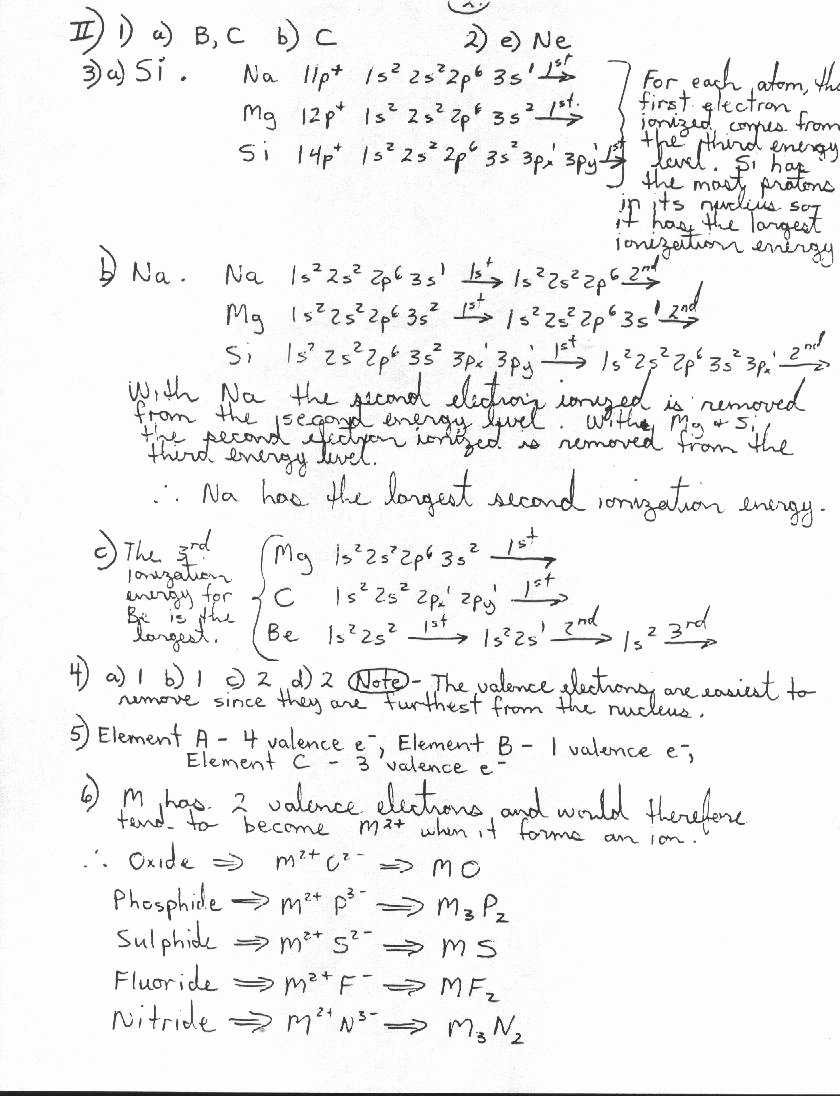 2.
II) 1) a) B, C b) C 2) e) Ne
3) a) Si. Na 11p⁺ 1s² 2s² 2p⁶ 3s¹ 1st→
Mg 12p⁺ 1s² 2s² 2p⁶ 3s² 1st.→
Si 14p⁺ 1s² 2s² 2p⁶ 3s² 3px¹ 3py¹ 1st→
For each atom, the
first electron
ionized comes from
the third energy
level. Si has
the most protons
in its nucleus so
it has the largest
ionization energy
b) Na. Na 1s² 2s² 2p⁶ 3s¹ 1st→ 1s² 2s² 2p⁶ 2nd→
Mg 1s² 2s² 2p⁶ 3s² 1st→ 1s² 2s² 2p⁶ 3s¹ 2nd→
Si 1s² 2s² 2p⁶ 3s² 3px¹ 3py¹ 1st→ 1s² 2s² 2p⁶ 3s² 3px¹ 2nd→
With Na the second electron ionized is removed
from the second energy level. With Mg + Si,
the second electron ionized is removed from the
third energy level.
∴ Na has the largest second ionization energy.
c) The 3rd
ionization
energy for
Be is the
largest.
Mg 1s² 2s² 2p⁶ 3s² 1st→
C 1s² 2s² 2px¹ 2py¹ 1st→
Be 1s² 2s² 1st→ 1s² 2s¹ 2nd→ 1s² 3rd→
4) a) 1 b) 1 c) 2 d) 2 Note - The valence electrons are easiest to
remove since they are furthest from the nucleus.
5) Element A - 4 valence e⁻, Element B - 1 valence e⁻,
Element C - 3 valence e⁻
6) M has 2 valence electrons and would therefore
tend to become M²⁺ when it forms an ion.
∴ Oxide ⇒ M²⁺ O²⁻ ⇒ MO
Phosphide ⇒ M²⁺ P³⁻ ⇒ M₃P₂
Sulphide ⇒ M²⁺ S²⁻ ⇒ MS
Fluoride ⇒ M²⁺ F⁻ ⇒ MF₂
Nitride ⇒ M²⁺ N³⁻ ⇒ M₃N₂